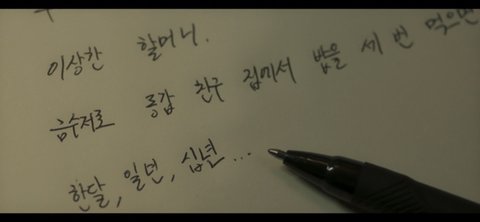 이상한 할머니.
금수저로 동갑 친구 집에서 밥을 세 번 먹으면
한달, 일년, 십년...